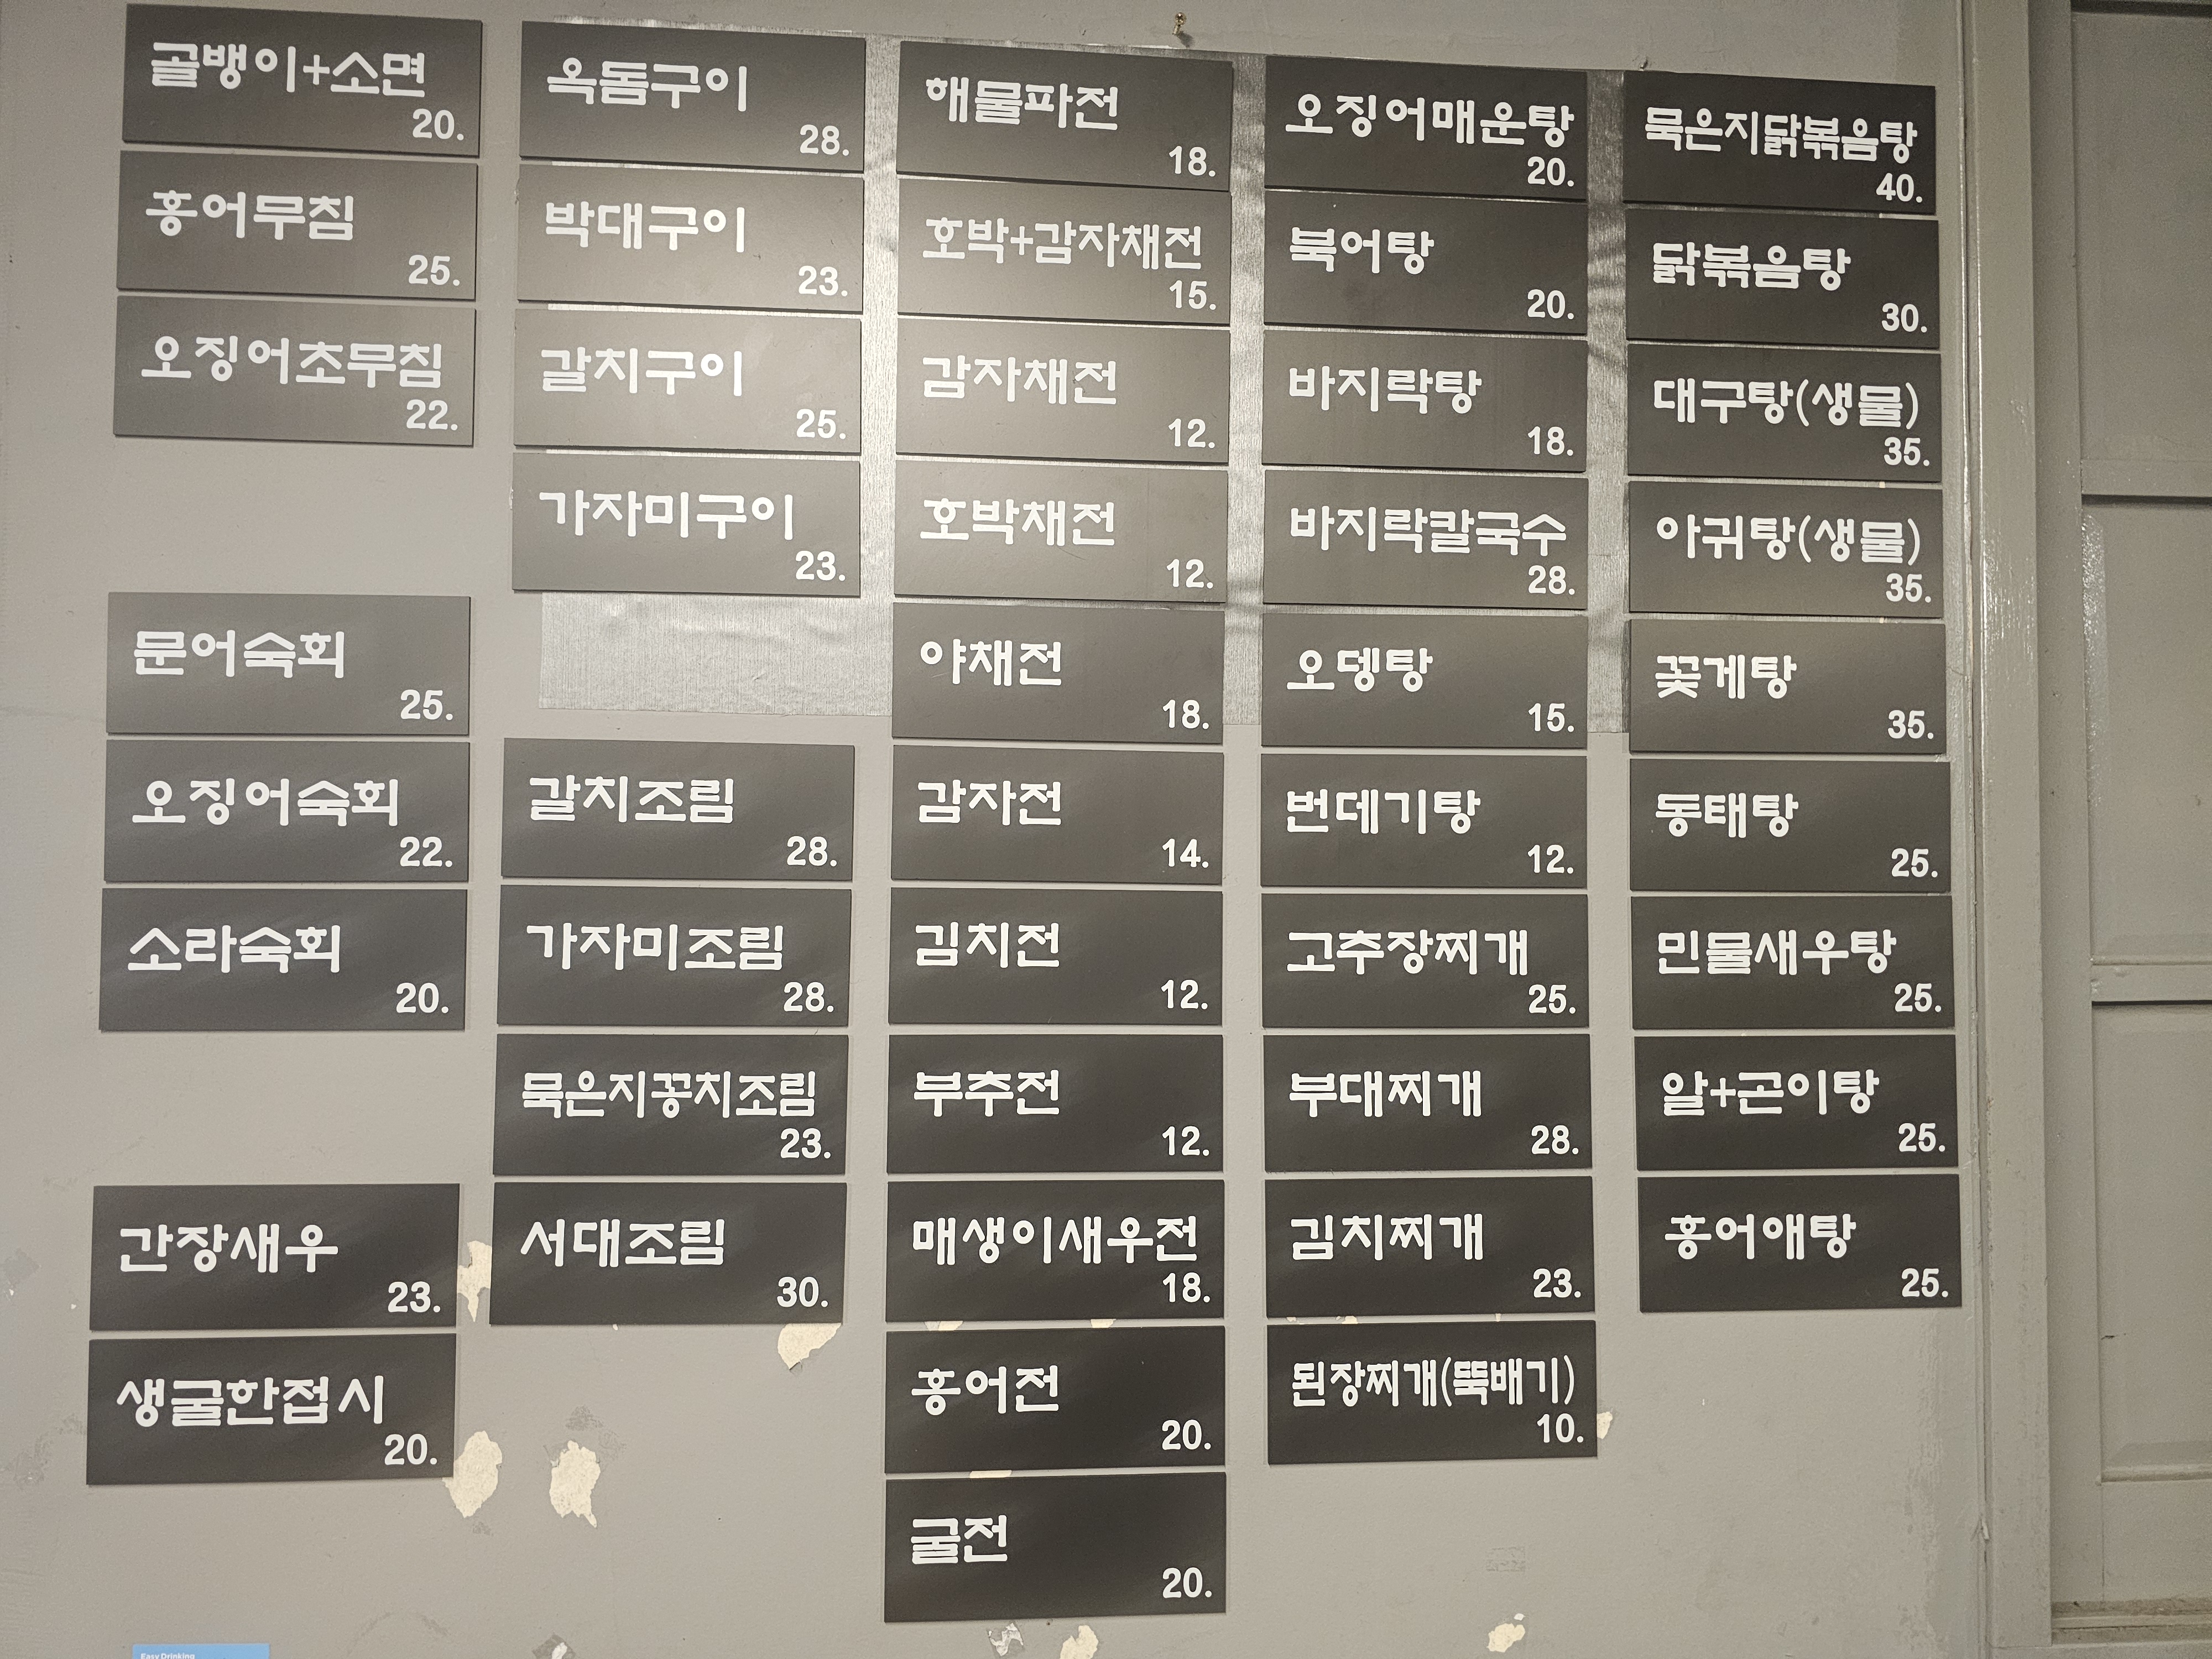 골뱅이+소면
20.
홍어무침
25.
오징어초무침
22.
문어숙회
25.
오징어숙회
22.
소라숙회
20.
간장새우
23.
생굴한접시
20.
옥돔구이
28.
박대구이
23.
갈치구이
25.
가자미구이
23.
갈치조림
28.
가자미조림
28.
묵은지꽁치조림
23.
서대조림
30.
해물파전
18.
호박+감자채전
15.
감자채전
12.
호박채전
12.
야채전
18.
감자전
14.
김치전
12.
부추전
12.
매생이새우전
18.
홍어전
20.
굴전
20.
오징어매운탕
20.
북어탕
20.
바지락탕
18.
바지락칼국수
28.
오뎅탕
15.
번데기탕
12.
고추장찌개
25.
부대찌개
28.
김치찌개
23.
된장찌개(뚝배기)
10.
묵은지닭볶음탕
40.
닭볶음탕
30.
대구탕(생물)
35.
아귀탕(생물)
35.
꽃게탕
35.
동태탕
25.
민물새우탕
25.
알+곤이탕
25.
홍어애탕
25.
Easy Drinking